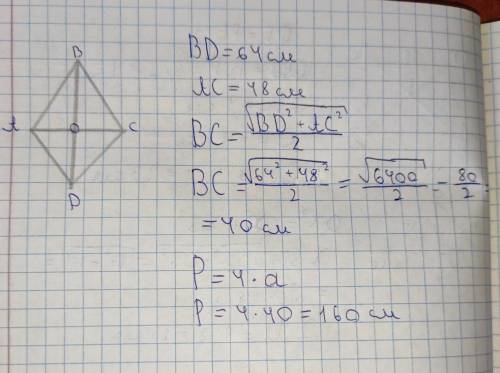 B
A O C
D
BD = 64 см
AC = 48 см
BC = √(BD² + AC²) / 2
BC = √(64² + 48²) / 2 = √6400 / 2 = 80 / 2 =
= 40 см
P = 4 · a
P = 4 · 40 = 160 см